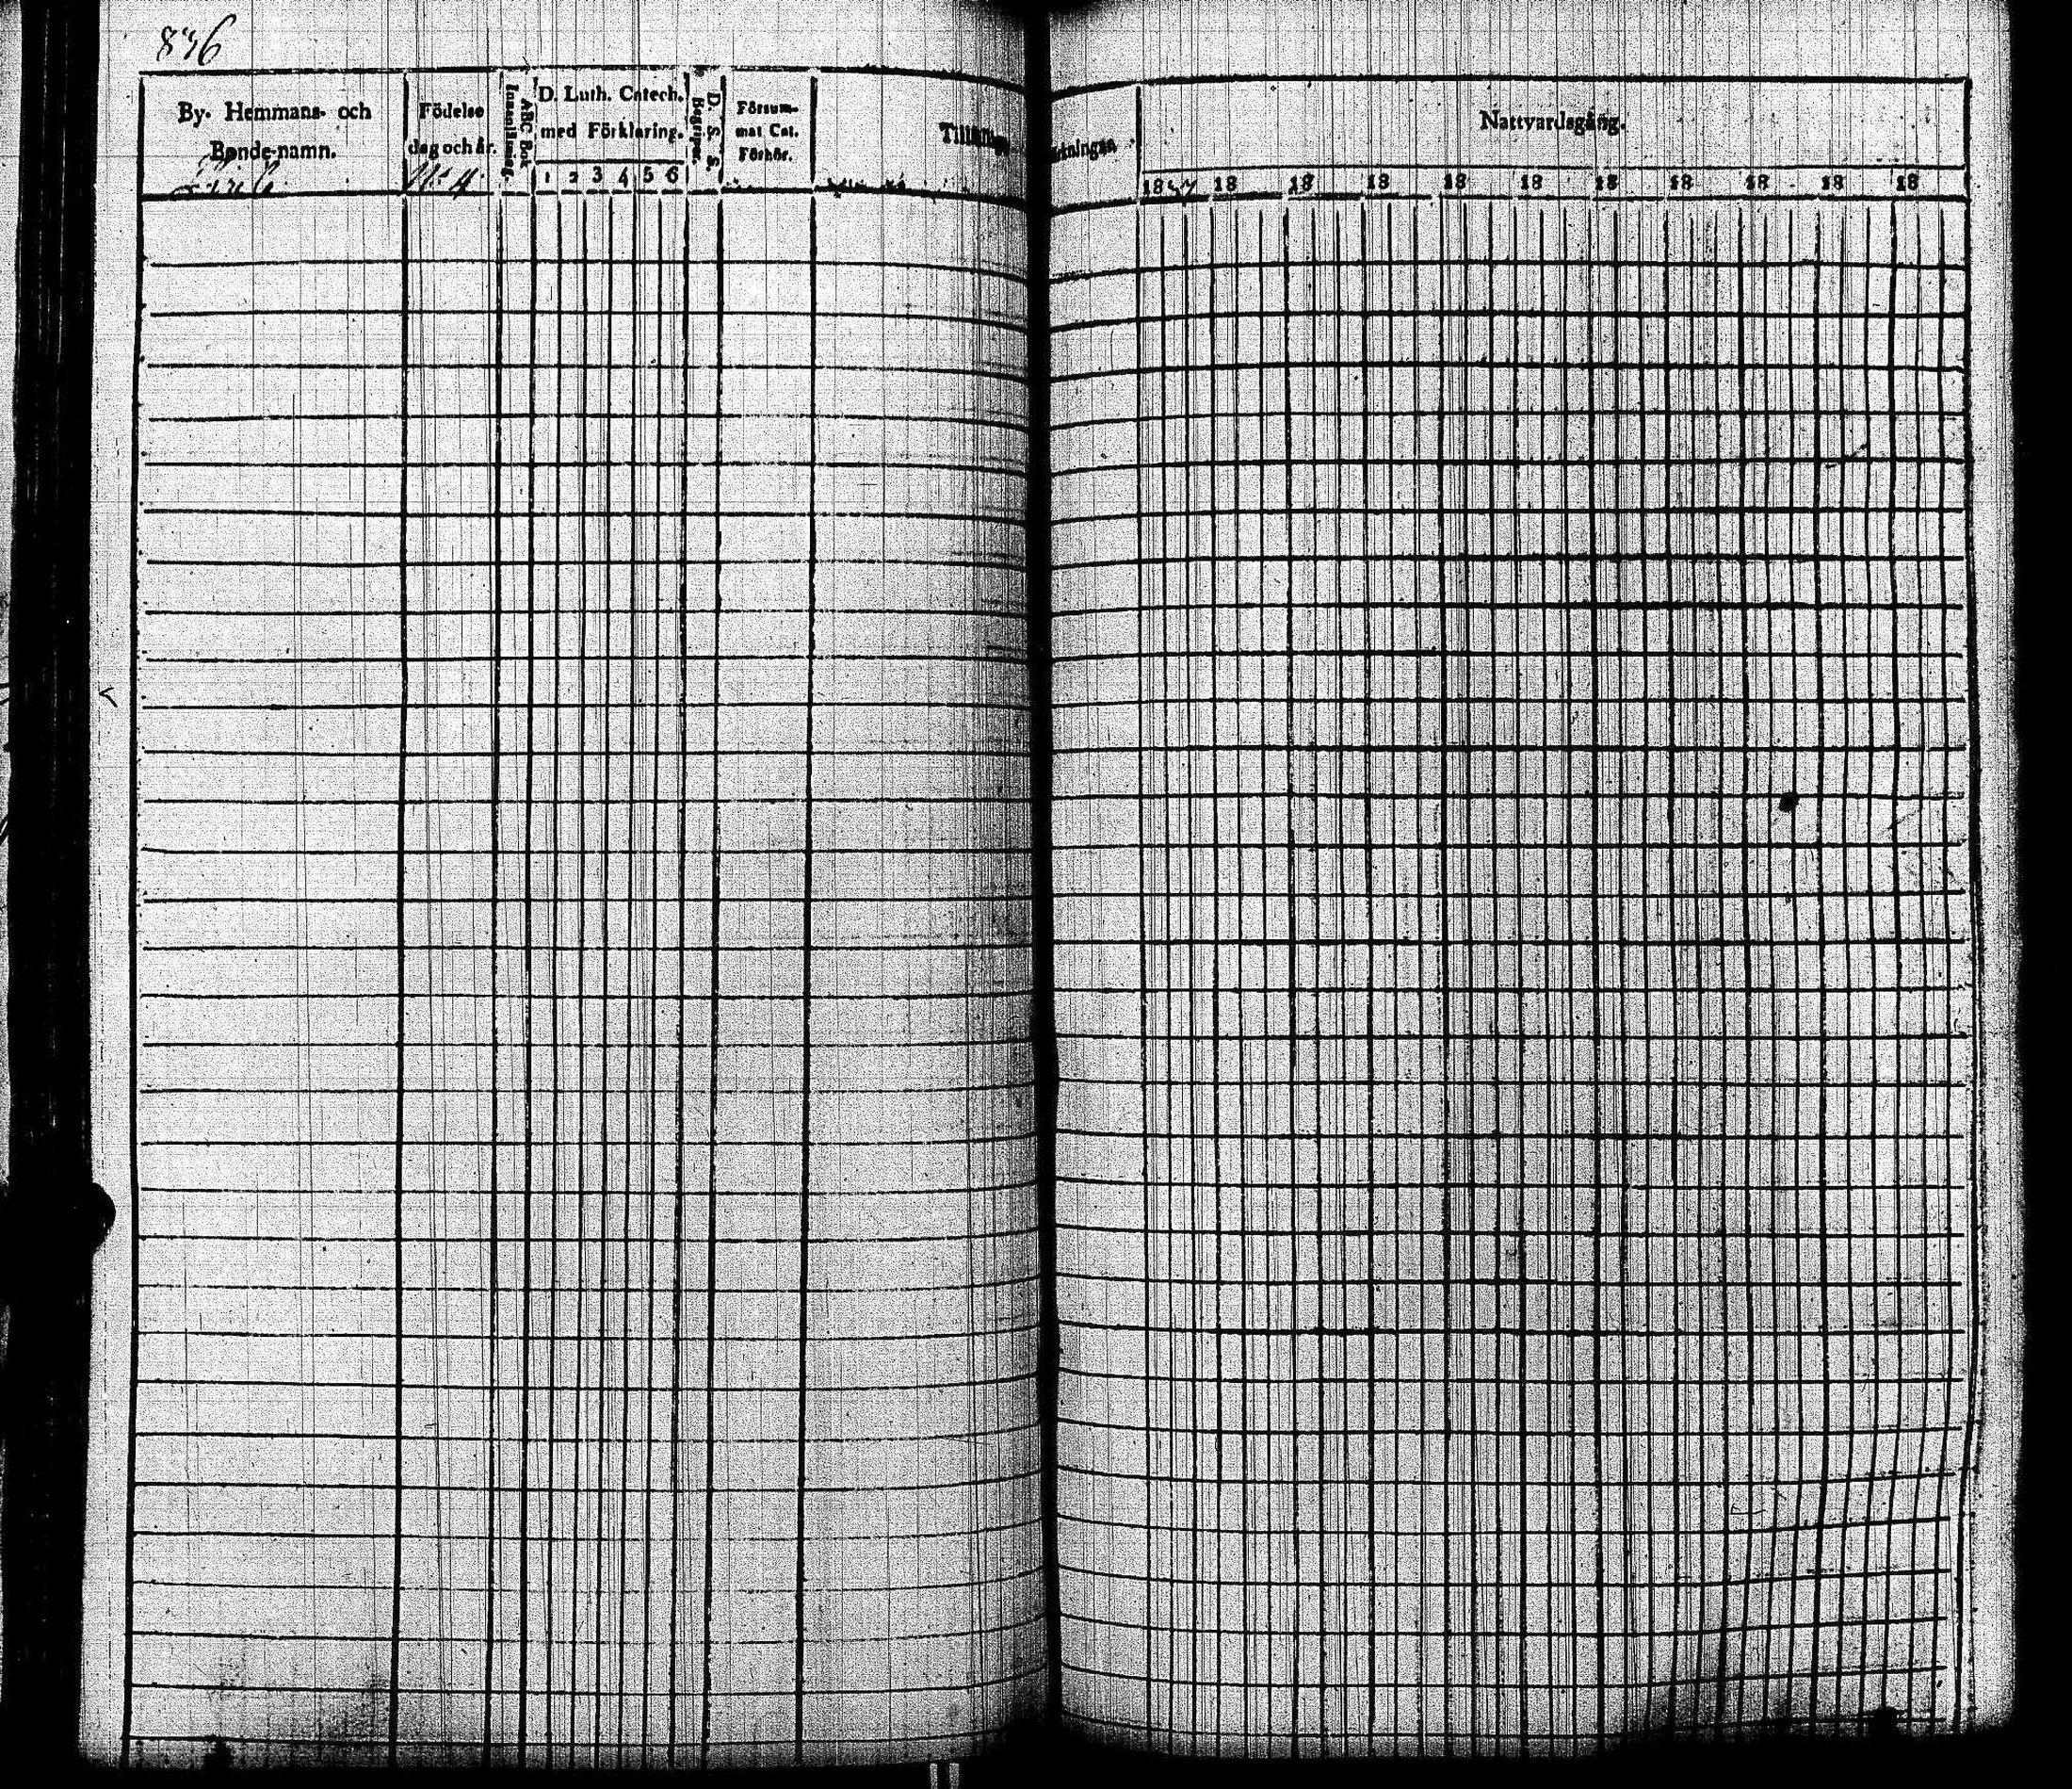 836
By. Hemmans- och
Bonde-namn.
Födelse
dag och år.
No 4.
ABC Bok
Innanläsning.
D. Luth. Catech.
med Förklaring.
1 2 3 4 5 6
D. S. S.
Begriper.
Försum-
mat Cat.
Förhör.
Nattvardsgång.
1847 18 18 18 18 18 18 18 18 18 18